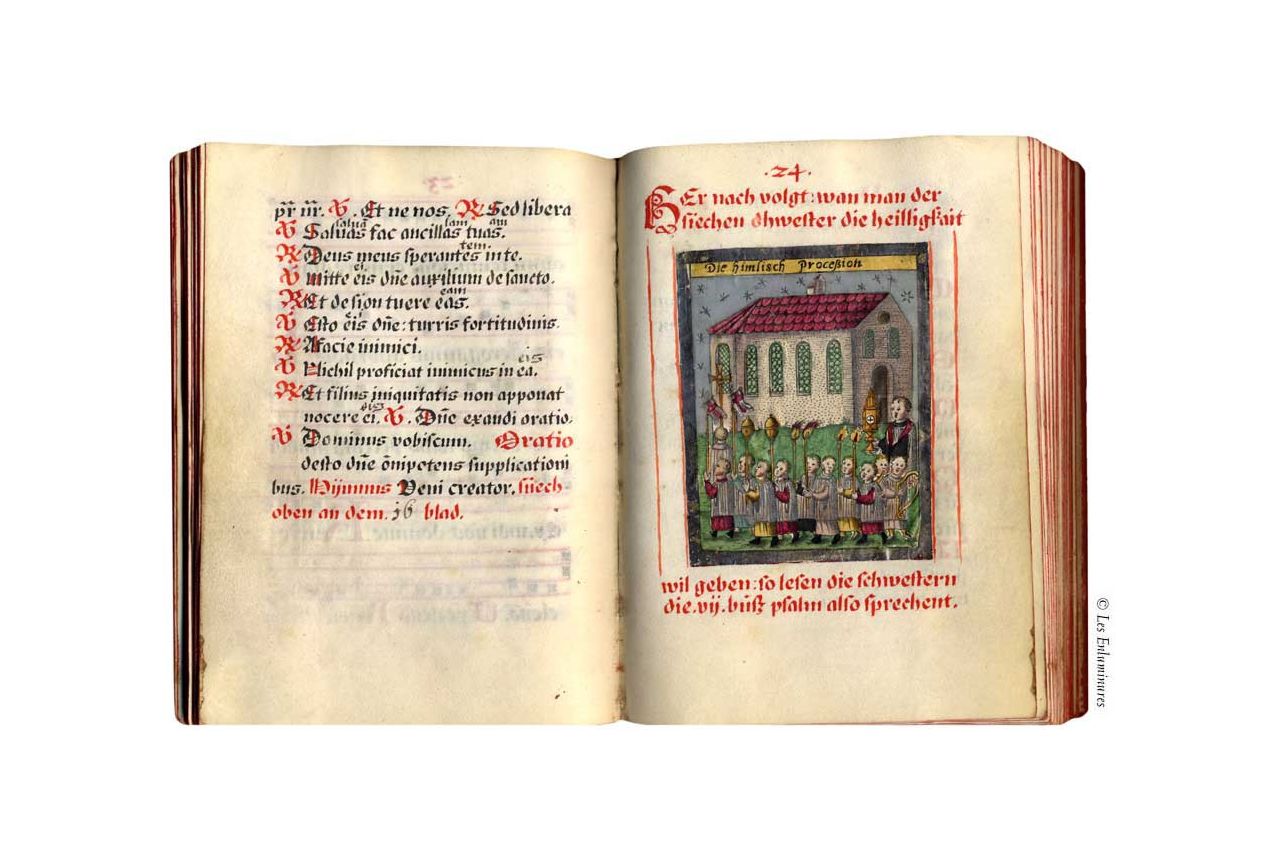 pr̃ ur̃. ℣. Et ne nos. ℟ Sed libera
℣ Saluas fac ancillas tuas.
℟ Deus meus sperantes in te.
℣ Mitte eis dñe auxilium de sancto.
℟ Et de sion tuere eas.
℣ Esto eis dñe: turris fortitudinis.
℟ A facie inimici.
℣ Nichil proficiat inimicus in ea.
℟ Et filius iniquitatis non apponat
nocere ei. ℣. Dñe exaudi oratio.
℣ Dominus vobiscum. Oratio
desto dñe õnipotens supplicationi
bus. Veni creator. suech
oben an dem. 36 blad.
.24.
HEr nach volgt: wan man der
siechen schwester die heilligkait
Die himlisch Proceßion
wil geben: so lesen die schwestern
die .vij. bůsz psalm also sprechent.
© Les Enluminures